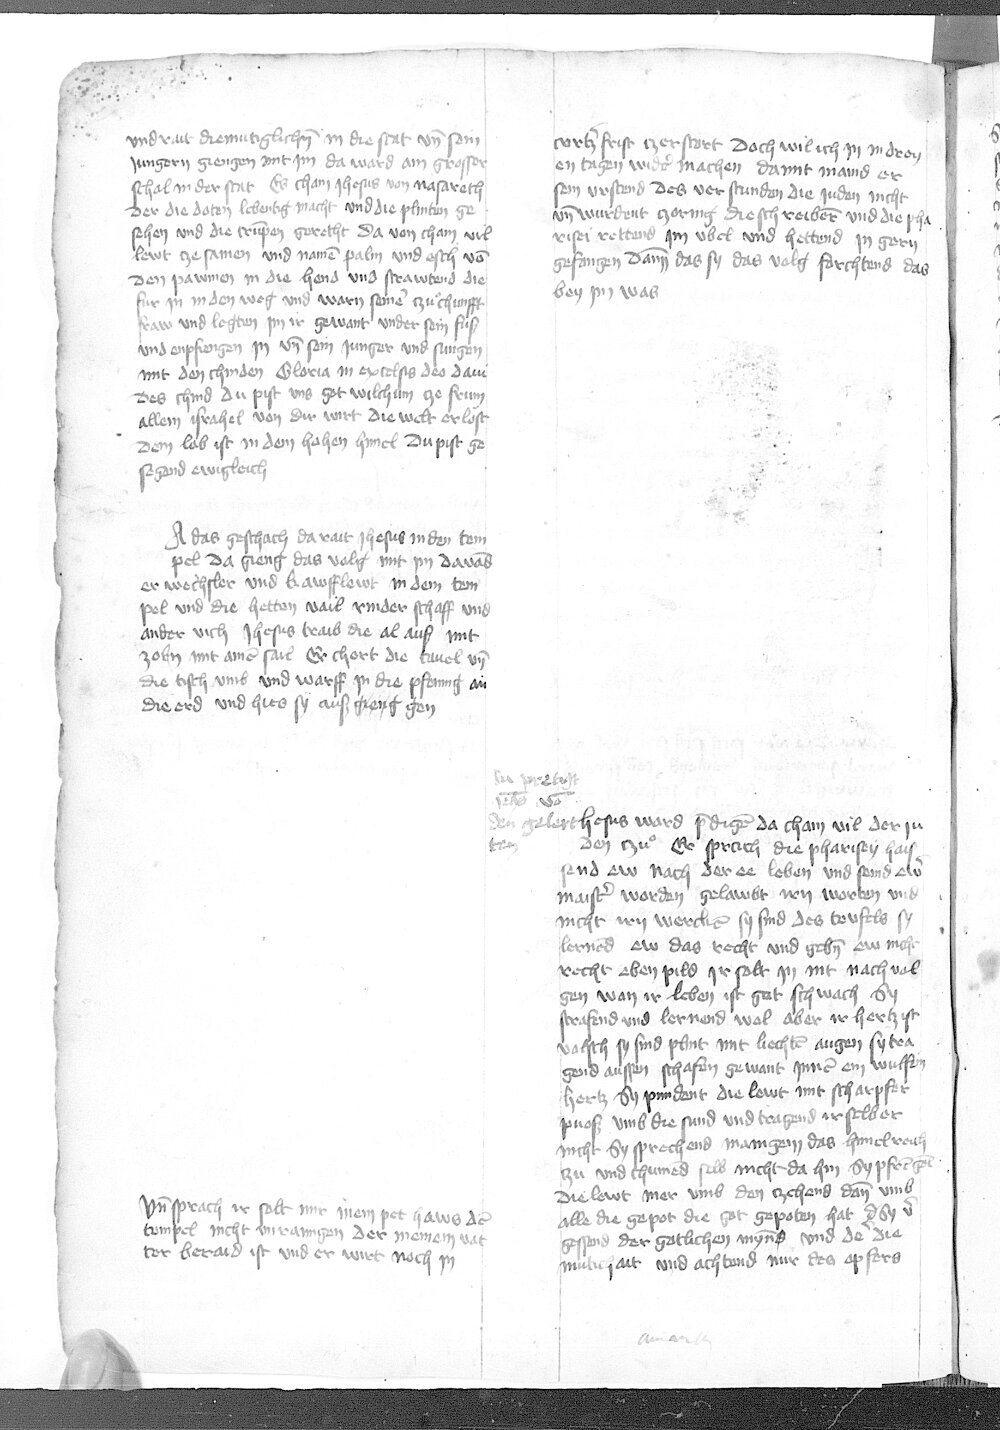 und rait diemutiglichn̄ in die stat vn̄ sein
jungern giengen mit im da ward ain grosser
schal in der stat Es cham jhesus von nasareth
der die doten lebentig macht und die plinten ge
sehen und die crūpen gerecht Da von cham vil
lewt cze samen und namē palm und esch vō
den pawmen in die hend und strawtend die
fur in in den weg und warn seinē czuͦ chunfft
fraw und legten im ir gewant under sein fuß
und enpfiengen in vn̄ sein junger und sungen
mit den chinden Gloria in excelsis deo davi
des chind Du pist uns got wilchum cze frum
allem israhel von dir wirt die welt erlost
Dem lob ist in dem hohen himel Du pist ge
segend ewigleich
A das geschach da rait jhesus in den tem
pel Da gieng das volg mit im da vād
er wechsler und kawfflewt in dem tem
pel und die hetten vail rinder schaff und
ander vich Jhesus traib die al auß mit
zorn mit ainē sail Er chert die tavel vn̄
die tisch umb und warff in die pfening an
die erd und hies sy auß gieng gen
Vn̄ sprach ir solt mir mein pet haws dē
tempel nicht unrainigen der meinem vat
ter beraid ist und er wirt noch in
curtz̄ frist czerstort Doch wil ich in in drey
en tagen wider machen damit maind er
sein urstend Des verstunden die juden nicht
vn̄ wurdent czornig die schreiber und die pha
risei rettend im ubel und hettend in gern
gefangen Dann das sy das volg forchtend das
bey im was
den gelert
ten
Jhesus ward p̄digē da cham vil der ju
den czuͦ Er sprach die pharisey hais
send ew nach der ee leben und seind ewr̄
maistr̄ worden gelawbt irn worten und
nicht irn werchē sy sind des teufels sy
lernēd ew das recht und gebn̄ ew nicht
recht eben pild Ir solt in nit nach vol
gen wan ir leben ist gar schwach Sy
strafend und lernend wol aber ir hertz ist
valsch sy sind plint mit liechtē augen sy tra
gend aussen schafen gewant innē ein wulfen
hertz Sy pindent die lewt mit scharpfer
puoß umb die sund und tragend ir selber
nicht Sy sprechend manigem das himelreich
zu und chumēd selb nicht da hin Sy
die lewt mer umb den czehend dan̄ umb
alle die gepot die got gepoten hat Sy v̄
gessend der gotlichen mynn̄ und de die
und achtend nur des opfers